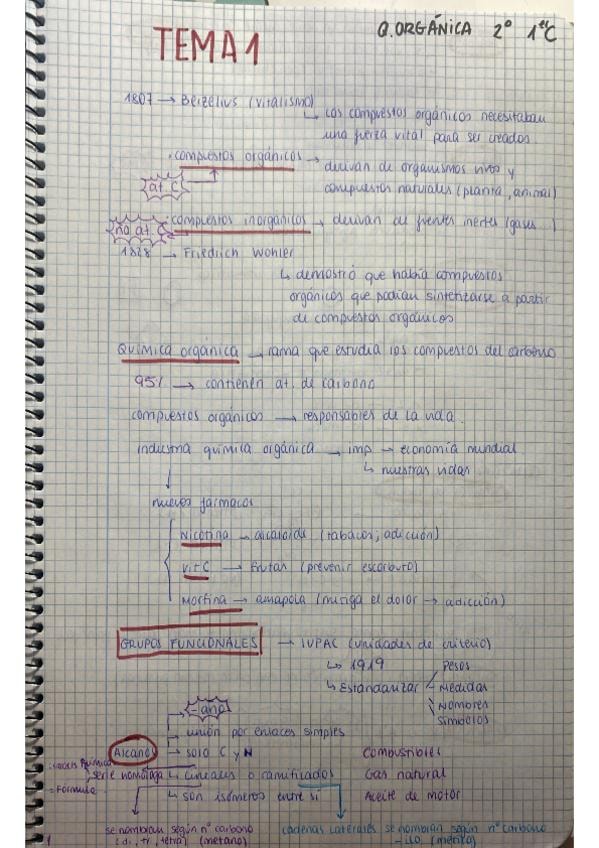 Q.ORGÁNICA 2º 1erC
TEMA 1
1807 → Beizelius (vitalismo)
↳ Los compuestos orgánicos necesitaban
una fuerza vital para ser creados
· compuestos orgánicos → derivan de organismos vivos y
at. C compuestos naturales (planta, animal)
no at. C · compuestos inorgánicos → derivan de fuentes inertes (gases )
1828 → Friedrich Wohler
↳ demostró que había compuestos
orgánicos que podían sintetizarse a partir
de compuestos orgánicos
Química orgánica → rama que estudia los compuestos del carbono
95% → contienen at. de carbono
compuestos orgánicos → responsables de la vida.
industria química orgánica → imp → economía mundial
↳ nuestras vidas
nuevos fármacos
Nicotina → alcaloide (tabacos; adicción)
Vit C → frutas (prevenir escorbuto)
Morfina → amapola (mitiga el dolor → adicción)
GRUPOS FUNCIONALES → IUPAC (unidades de criterio)
↳ 1919 Pesos
↳ Estandarizar Medidas
Nombres
Símbolos
- ano
unión por enlaces simples
Alcanos → solo C y H Combustibles
Química
serie homóloga ↳ Lineales o ramificados Gas natural
= Formula ↳ son isómeros entre sí Aceite de motor
se nombran según nº carbono cadenas laterales se nombran según nº carbono
(di, tri, tetra) (metano) - ilo (metilo)
1